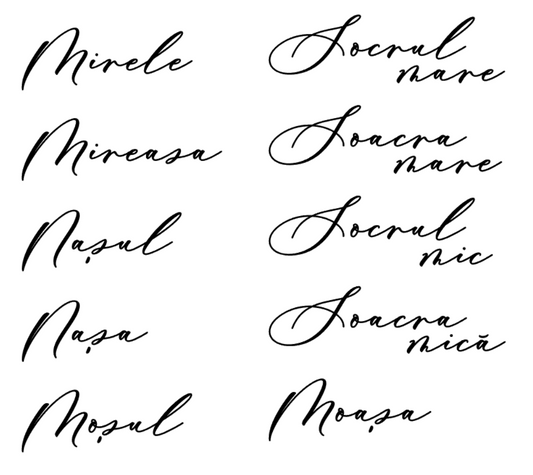 Mirele
Mireasa
Nașul
Nașa
Moșul
Socrul
mare
Soacra
mare
Socrul
mic
Soacra
mică
Moașa